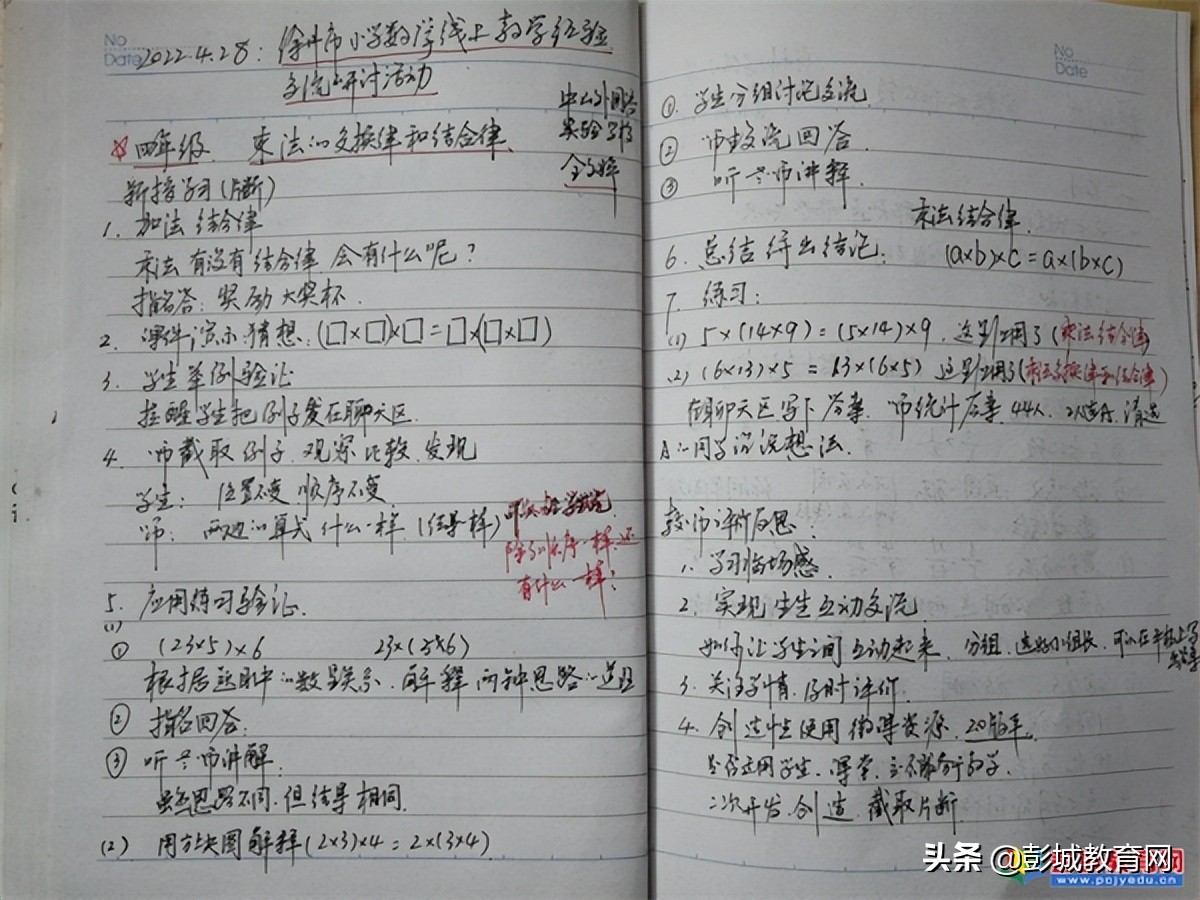 No
Date
2022.4.28：徐州市小学数学线上教学经验
交流研讨活动
中山外国语
实验学校
四年级 乘法的交换律和结合律
新授学习(片断)
1. 加法结合律
乘法有没有结合律 会有什么呢？
指名答：奖励大奖杯.
2. 课件演示猜想：(□×□)×□=□×(□×□)
3. 学生举例验证
提醒学生把例子发在聊天区.
4. 师截取例子. 观察 比较. 发现
学生： 位置不变 顺序不变
师： 两边的算式什么一样 (结果一样)
除了顺序一样，还
有什么一样？
5. 应用练习验证.
(1)
① (23×5)×6 23×(5×6)
根据题目中的数量关系. 解释两种思路的道理
② 指名回答.
③ 听老师讲解.
虽然思路不同. 但结果相同.
(2) 用方块图解释(2×3)×4=2×(3×4)
No
Date
①. 学生分组讨论交流
② 师生交流回答
③ 听老师讲释.
乘法结合律.
6. 总结得出结论： (a×b)×c=a×(b×c)
7. 练习：
(1) 5×(14×9)=(5×14)×9. 这是应用了(乘法结合律)
(2) (6×13)×5=13×(6×5) 这是应用了(乘法交换律和结合律)
在聊天区写下答案. 师统计答案 44人. 2人选A. 请选
A的同学说说想法.
教师评价反思：
1. 学习临场感.
2. 实现生生互动交流
如何让学生之间互动起来. 分组. 选好小组长. 可以在平板上写
3. 关注学情. 及时评价.
4. 创造性使用微课资源.
二次开发. 创造. 截取片断.
头条 @彭城教育网
www.pcjyedu.cn